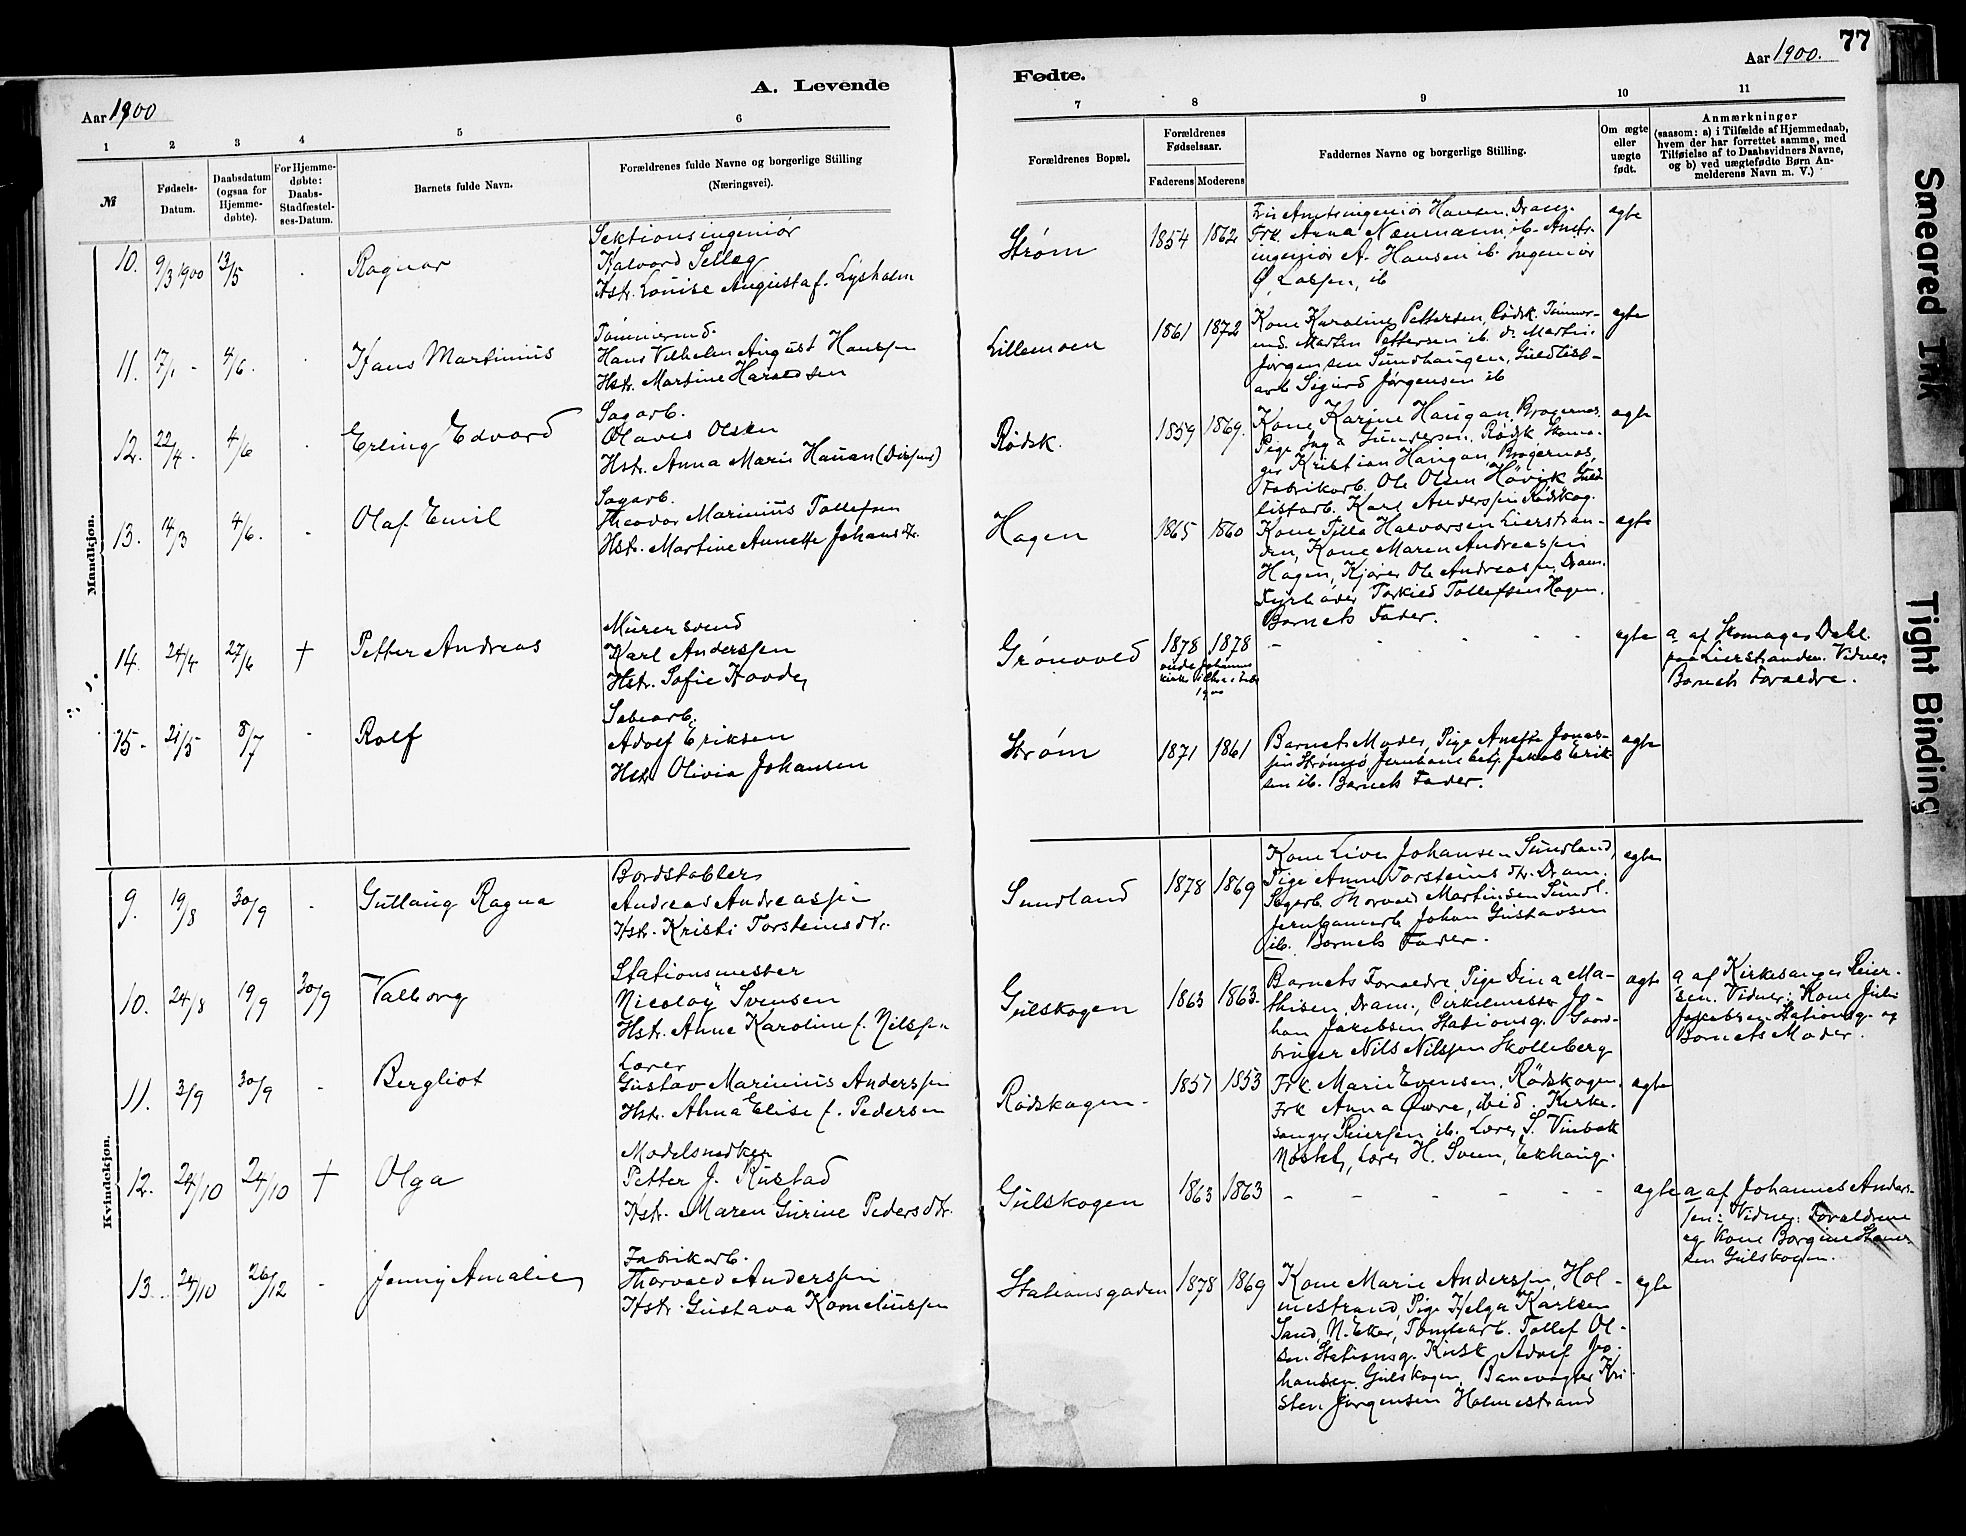 77
Aar 1900
A. Levende
Fødte.
Aar 1900.
1 2 3 4 5 6
7 8 9 10 11
№
Fødsels-
Datum.
Daabsdatum
(ogsaa for
Hjemme-
døbte).
For Hjemme-
døbte:
Daabs-
Stadfæstel-
ses-Datum.
Barnets fulde Navn.
Forældrenes fulde Navne og borgerlige Stilling
(Næringsvei).
Forældrenes Bopæl.
Forældrenes
Fødselsaar.
Faderens Moderens
Faddernes Navne og borgerlige Stilling.
Om ægte
eller
uægte
født.
Anmærkninger
(saasom: a) i Tilfælde af Hjemmedaab,
hvem der har forrettet samme, med
Tilføielse af to Daabsvidners Navne,
og b) ved uægtefødte Børn An-
melderens Navn m. V.)
Mandkjøn.
10. 9/3 1900 13/5 . Ragnar
Sektionsingeniør
Halvard Selleg
Hstr. Louise Augusta f. Lysholm
Strøm 1854 1862
Amtsingeniør Hansen, Dram.
Frk. Anna Neumann, ib. Amts-
ingeniør A. Hansen ib. Ingeniør
Ø. Lassen, ib
ægte
11. 17/1 - 4/6 . Hans Martinius
Tømmermd.
Hans Vilhelm August Hanssen
Hstr. Martine Haraldsen
Lillemoen 1861 1872
Kone Karoline Pettersen, Rødsk. Tømmer-
md. Martin Pettersen ib. Martin
Jørgensen Sundhaugen, Guldlist-
arb Sigurd Jørgensen ib
ægte
12. 22/4 - 4/6 . Erling Edvard
Sagarb.
Olavis Olsen
Hstr. Anna Marie Hauan
Rødsk. 1859 1869.
Kone Karine Haugan, Bragernæs,
Pige Inga Gundersen, Rødsk. Skoma-
ger Kristian Haugan, Bragernæs,
Fabrikarb. Ole Olsen Høvik Guld-
listarb. Karl Anderssen Rødskog.
ægte
13. 14/3 4/6. . Olaf Emil
Sagarb.
Theodor Marinius Tollefsen
Hstr. Martine Annette Johansdtr.
Hagen 1865 1860
Kone Tilla Halvorsen Lierstran-
den, Kone Maren Andreassen
Hagen, Kjører Ole Andreassen, Dram.
Fyrbøder Torkild Tollefsen Hagen.
Barnets Fader.
ægte
14. 24/4 27/6 † Petter Andreas
Murersvend
Karl Anderssen
Hstr. Sofie Hovde
Grønvold 1878 1878
1900
- - - - -
ægte
a af Skomager Dahl
paa Lierstranden. Vidner.
Barnets Forældre.
15 - 21/5 8/7 . Rolf
Adolf Eriksen
Hstr Olivia Johansen
Strøm 1871 1861
Barnets Moder, Pige Anette Jonas-
sen Strømsø, Jernbanebetj. Jakob Erik
sen ib. Barnets Fader.
ægte
Kvindekjøn.
9. 19/8 30/9 . Gutlaug Ragna
Bordstabler
Andreas Andreassen
Hstr. Kristi Torsteinsdtr.
Sundland 1878 1869
Kone Live Johansen Sundland,
Pige Anne Torsteinsdtr. Dram.
Sagarb. Thorvald Martinsen Sundl.
Johan Gustavsen
ib. Barnets Fader.
ægte
10. 24/8 19/9 30/9 Valborg
Stationsmester
Nicolay Svensen
Hstr. Anne Karoline f. Nilssen
Gulskogen 1863 1863.
Barnets Forældre, Pige Dina Ma-
thisen, Dram., Cirkelmester Jo-
han Jakobsen Stationsg. Gaard-
bruger Nils Nilssen Skolleberg
ægte
a af Kirkesanger Reier-
sen. Vidner: Kone Julie
Jakobsen Stationsg. og
Barnets Moder.
11. 3/9 30/9 - Bergliot
Lærer
Gustav Marinius Anderssen
Hstr. Alma Elise f. Pedersen
Rødskogen - 1857 1853
Frk. Marie Evensen, Rødskogen.
Frk Anna Øvre, ibid. Kirke-
sanger Reiersen ib. Lærer S. Vinbæk
Lærer H. Sveen, Ekhaug.
ægte
12. 24/10 24/10 † Olga
Modelsnedker
Petter J. Rustad
Hstr. Maren Gurine Pedersdtr.
Gulskogen 1863 1863
- - - - - -
ægte
a af Johannes Anders-
sen: Vidner: Forældrene
og Kone Borgine
Gulskogen.
13. 24/10 26/12 - Jenny Amalie
Fabrikarb.
Thorvald Anderssen
Hstr. Gustava Korneliussen
Stationsgaden 1878 1869
Kone Marie Anderssen, Hol-
mestrand, Pige Helga Karlsen
Sand, N. Eker, Tømtearb. Tollef Ol-
sen Stationsg. Kusk Adolf Jo-
hansen, Gulskogen, Banevogter Kri-
sten Jørgensen Holmestrand
ægte
Smeared Ink
Tight Binding